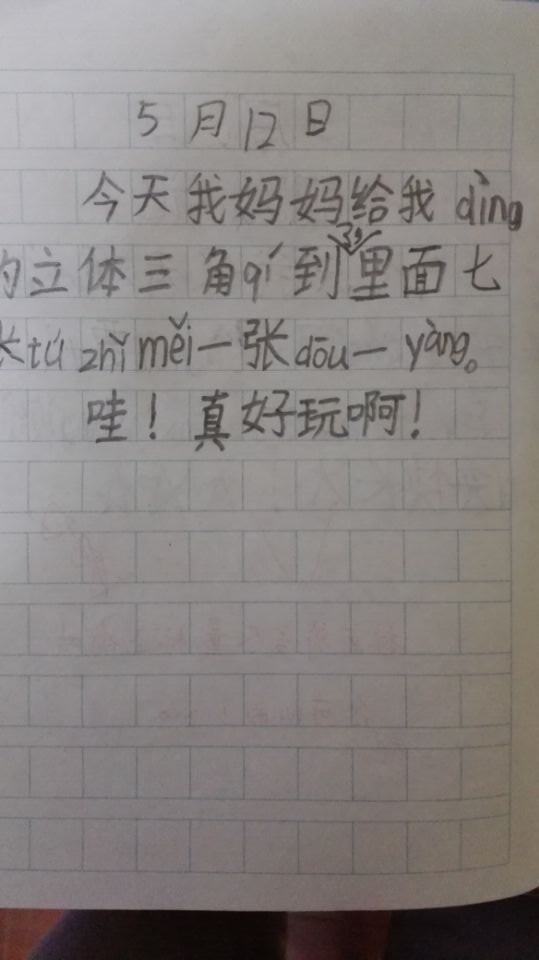 5月12日
今天我妈妈给我dìng
的立体三角qí到了,里面七
张tú zhǐ měi一张dōu一yàng。
哇！真好玩啊！